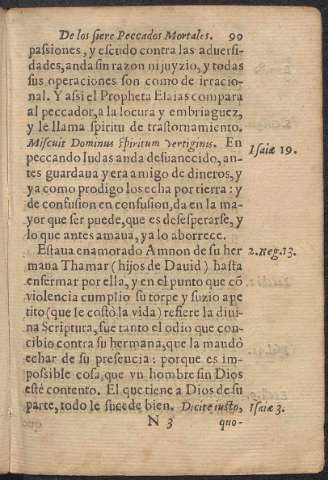 De los siete Peccados Mortales. 99
passiones, y escudo contra las aduersi-
dades, anda sin razon ni juyzio, y todas
sus operaciones son como de irracio-
nal. Y assi el Propheta Elaias compara
al peccador, a la locura y embriaguez,
y le llama spiritu de trastornamiento.
Miscuit Dominus spiritum vertiginis. En
Isaiæ 19.
peccando Iudas anda desuanecido, an-
tes guardaua y era amigo de dineros, y
ya como prodigo los echa por tierra: y
de confusion en confusion, da en la ma-
yor que ser puede, que es desesperarse, y
lo que antes amaua, ya lo aborrece.
Estaua enamorado Amnon de su her
2. Reg. 13.
mana Thamar (hijos de Dauid) hasta
enfermar por ella, y en el punto que cõ
violencia cumplio su torpe y suzio ape
tito (que le costò la vida) refiere la diui-
na Scriptura, fue tanto el odio que con-
cibio contra su hermana, que la mandò
echar de su presencia: porque es im-
possible cosa, que vn hombre sin Dios
estè contento. El que tiene a Dios de su
parte, todo le sucede bien. Dicite iusto,
Isaiæ 3.
N 3
quo-